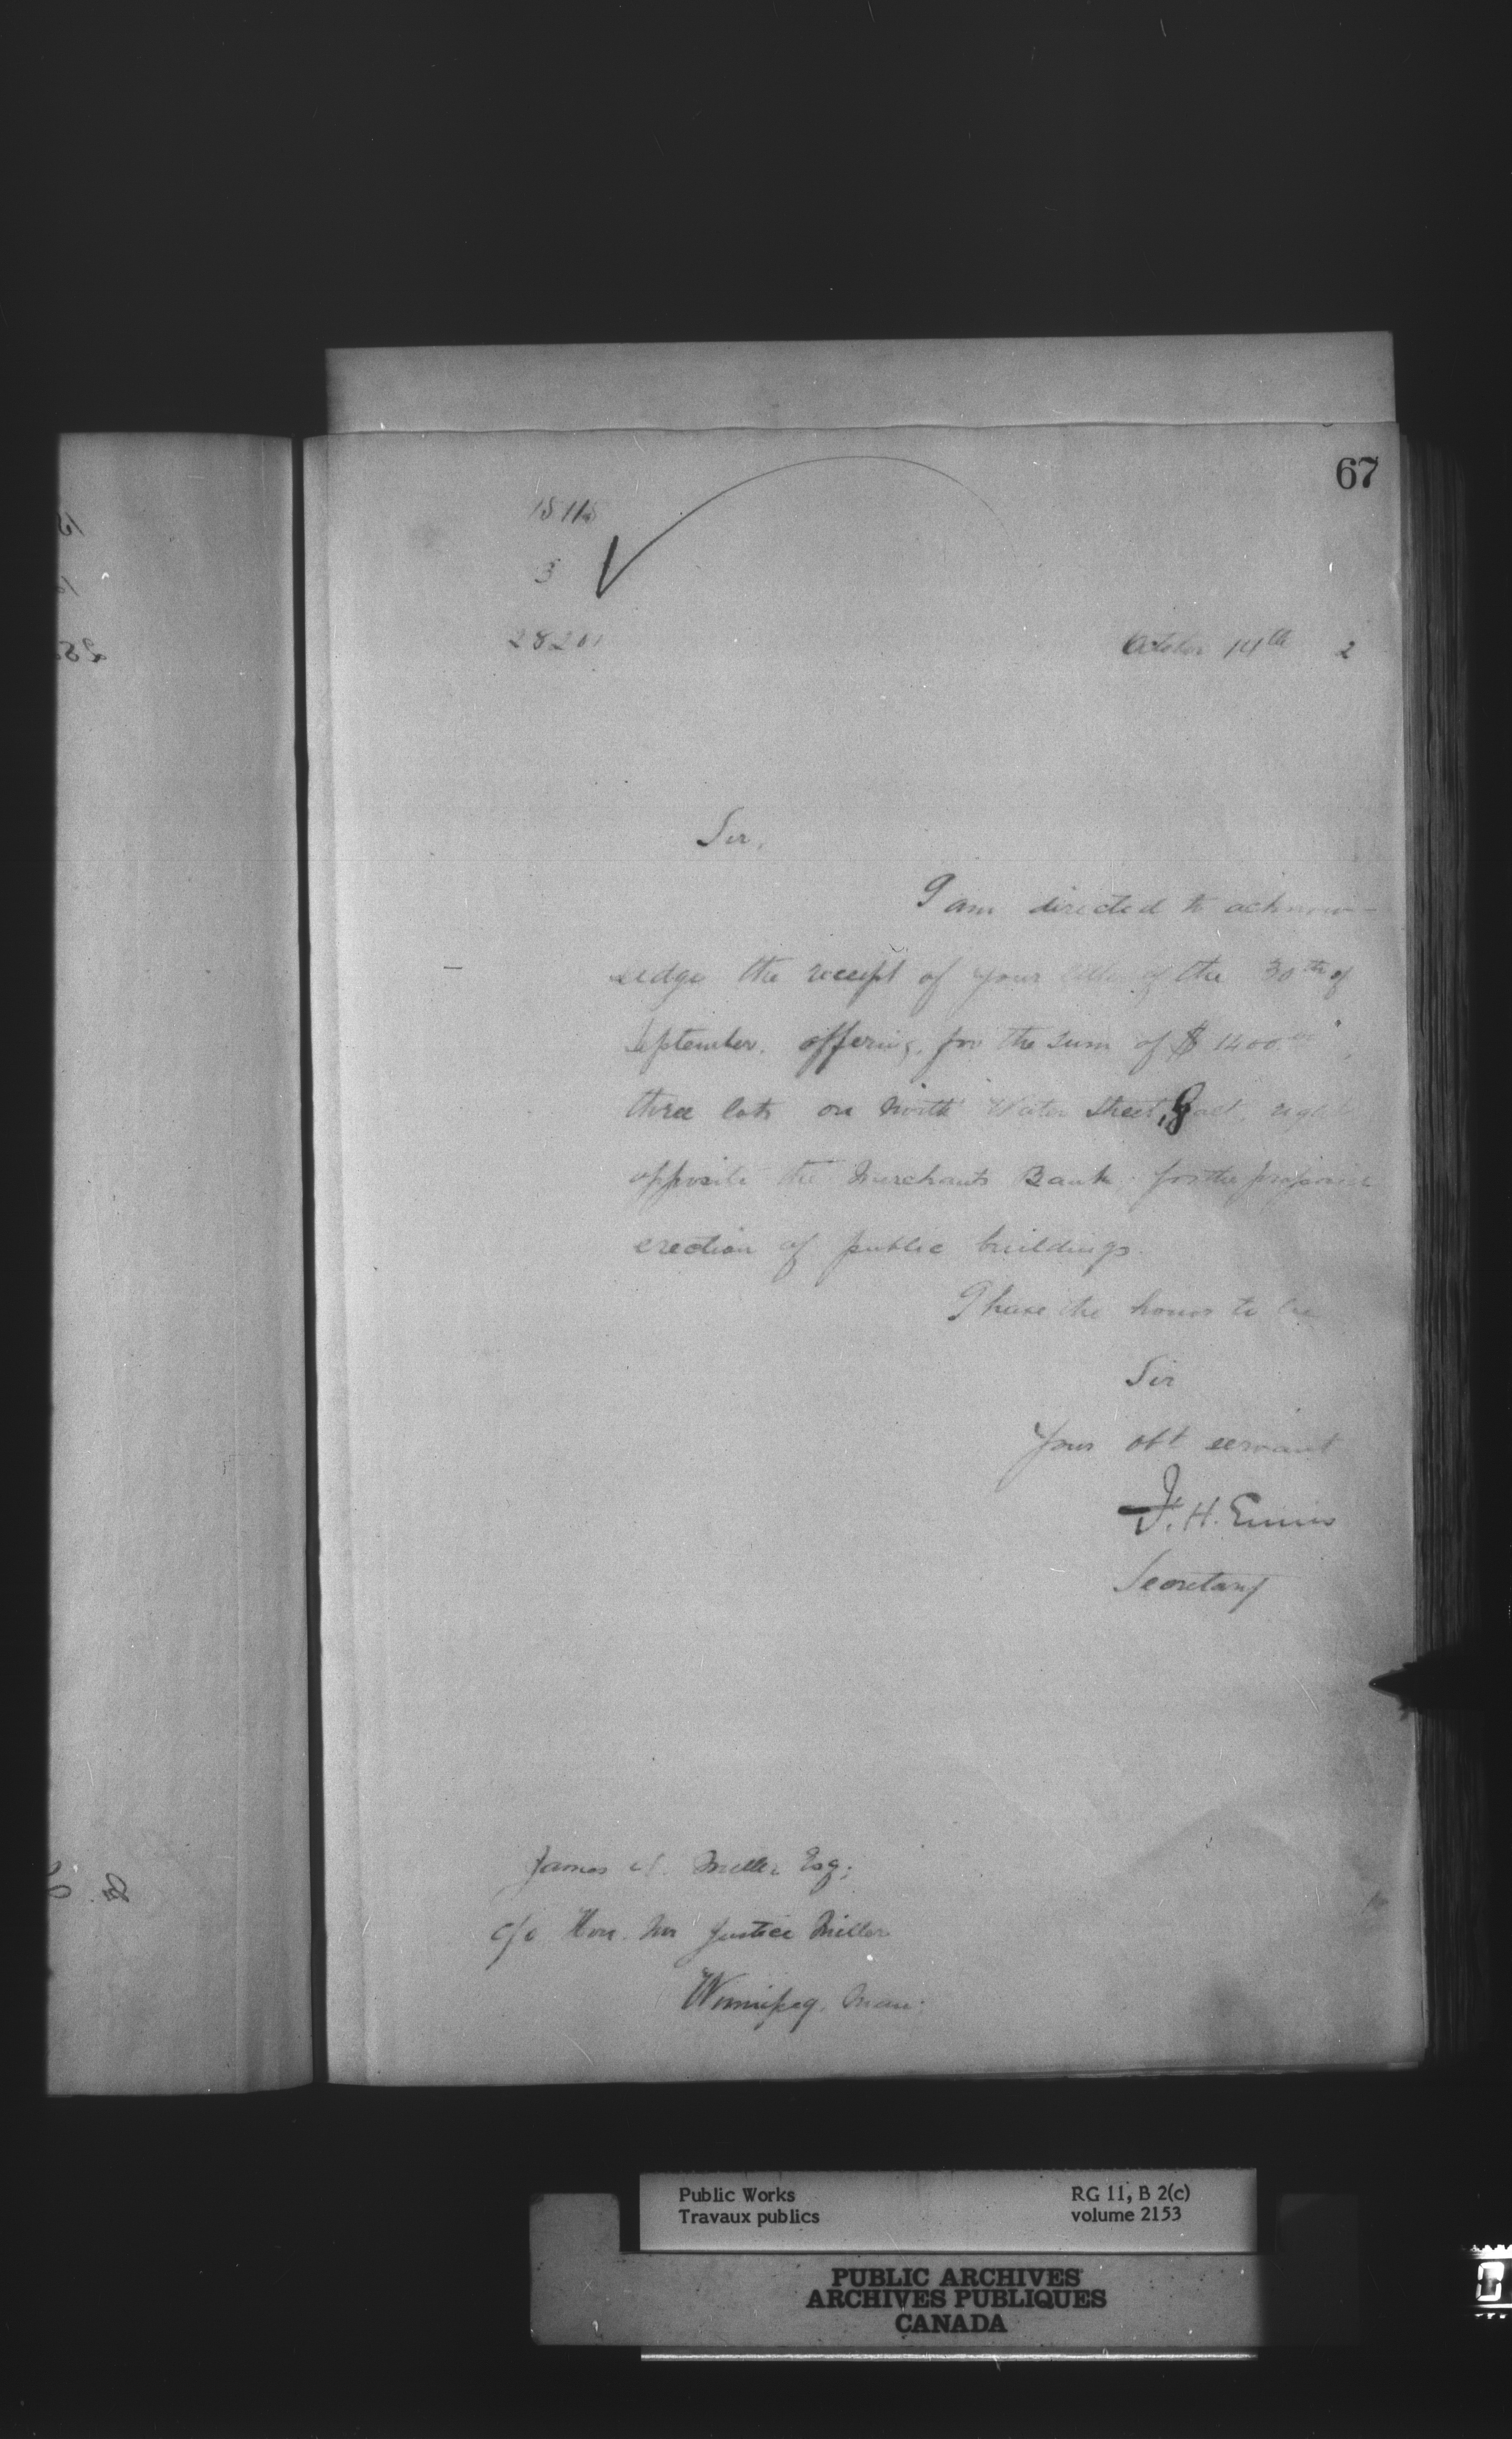 67
15115
3
28201
October 14th 2
Sir,
I am directed to acknow-
ledge the receipt of your letter of the 30th of
September, offering, for the sum of $1400.00,
three lots on North Water Street, Galt, right
opposite the Merchants Bank for the proposed
erection of public buildings.
I have the honor to be
Sir
Your obt servant
F. H. Ennis
Secretary
James Miller Esq;
c/o Hon. Mr Justice Miller
Winnipeg, Man:
Public Works
Travaux publics
RG 11, B 2(c)
volume 2153
PUBLIC ARCHIVES
ARCHIVES PUBLIQUES
CANADA